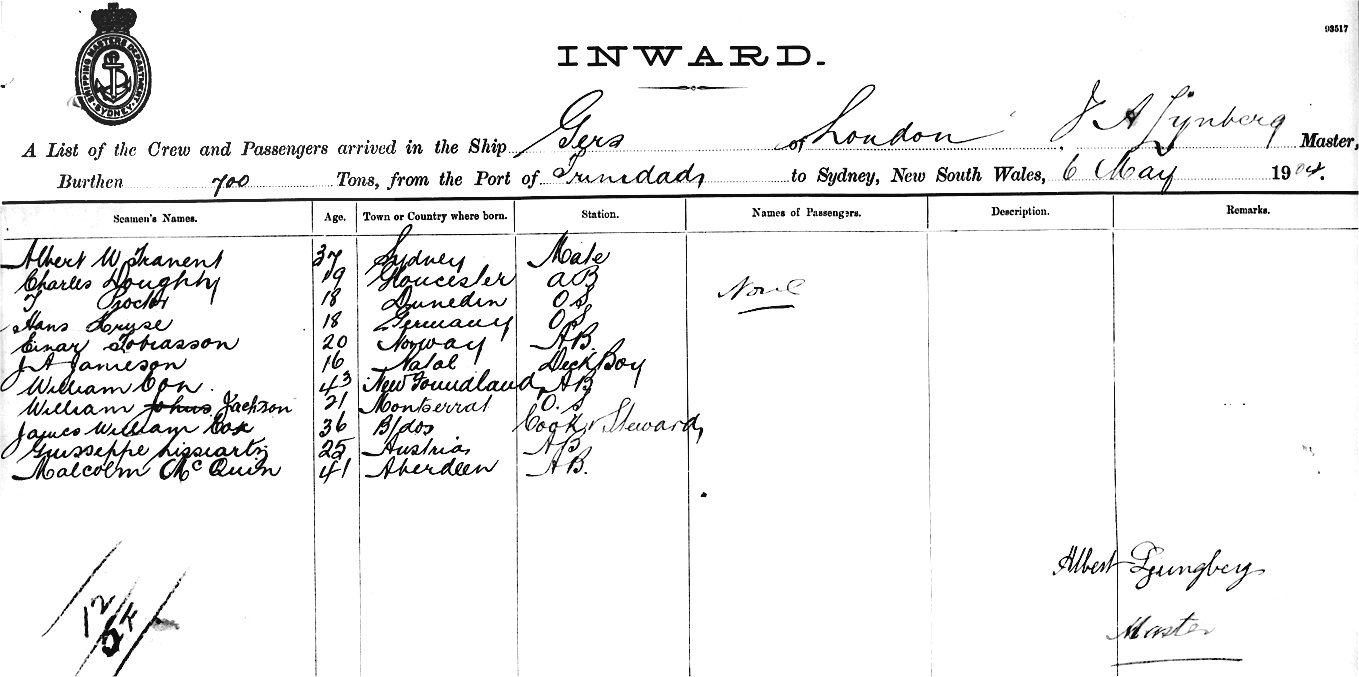 93517
SHIPPING MASTERS DEPARTMENT SYDNEY
INWARD.
A List of the Crew and Passengers arrived in the Ship Gers of London J A Lynberg Master,
Burthen 700 Tons, from the Port of Trinidad, to Sydney, New South Wales, 6 May 1904.
Seamen's Names. Age. Town or Country where born. Station. Names of Passengers. Description. Remarks.
Albert W Tranent 37 Sydney Mate
Charles Doughty 19 Gloucester AB
T Procter 18 Dunedin O S
None
Hans Kryse 18 Germany O S
Einar Tobiasson 20 Norway A.B.
J A Jamieson 16 Natal Deck Boy
William Con. 43 New Foundland, AB
William Johns Jackson 21 Montserrat O.S
James William Cox 36 B/dos Cook & Steward,
Guisseppe 25 Austria AB
Malcolm McQuin 41 Aberdeen AB.
Albert Ljungberg
Master
12/5/4